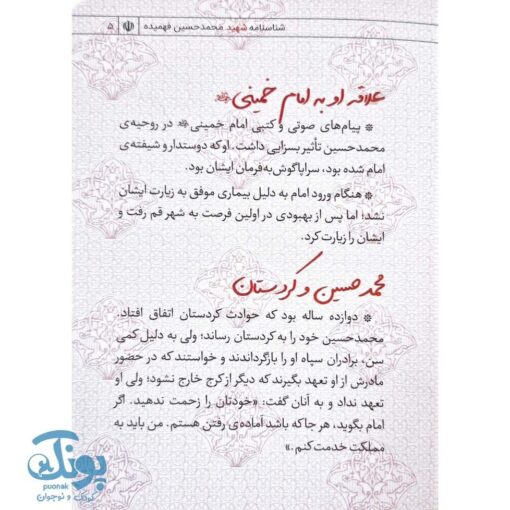 شناسنامه شهید محمدحسین فهمیده
۵
علاقه او به امام خمینی
* پیام‌های صوتی و کتبی امام خمینی در روحیه‌ی
محمدحسین تأثیر بسزایی داشت. او که دوستدار و شیفته‌ی
امام شده بود، سراپا گوش به فرمان ایشان بود.
* هنگام ورود امام به دلیل بیماری موفق به زیارت ایشان
نشد؛ اما پس از بهبودی در اولین فرصت به شهر قم رفت و
ایشان را زیارت کرد.
محمدحسین و کردستان
* دوازده ساله بود که حوادث کردستان اتفاق افتاد.
محمدحسین خود را به کردستان رساند؛ ولی به دلیل کمی
سن، برادران سپاه او را بازگرداندند و خواستند که در حضور
مادرش از او تعهد بگیرند که دیگر از کرج خارج نشود؛ ولی او
تعهد نداد و به آنان گفت: «خودتان را زحمت ندهید. اگر
امام بگوید، هر جا که باشد آماده‌ی رفتن هستم. من باید به
مملکت خدمت کنم.»
پونک
puonak
کودک و نوجوان